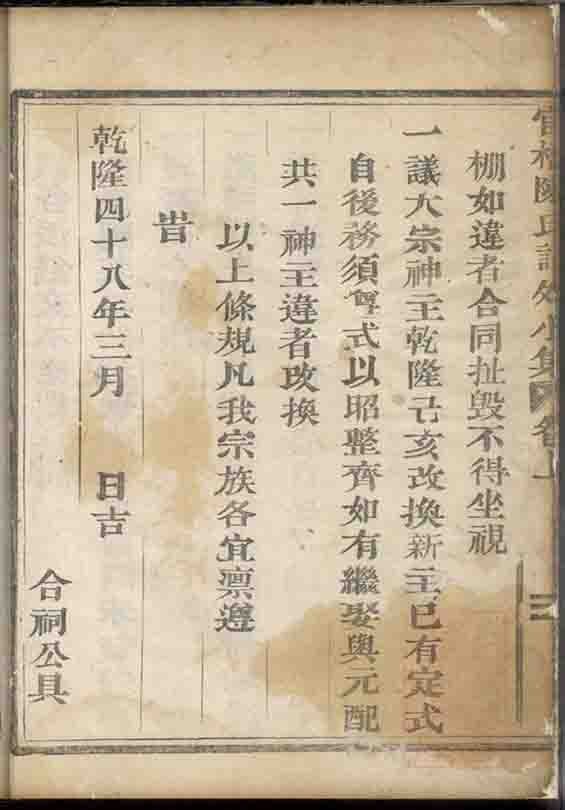 陳氏 小集 卷 三
棚如違者合同扯毀不得坐視
一議大宗神主乾隆己亥改換新主已有定式
自後務須尊式以昭整齊如有繼娶與元配
共一神主違者改換
以上條規凡我宗族各宜凛遵
旹
乾隆四十八年三月 日吉
合祠公具